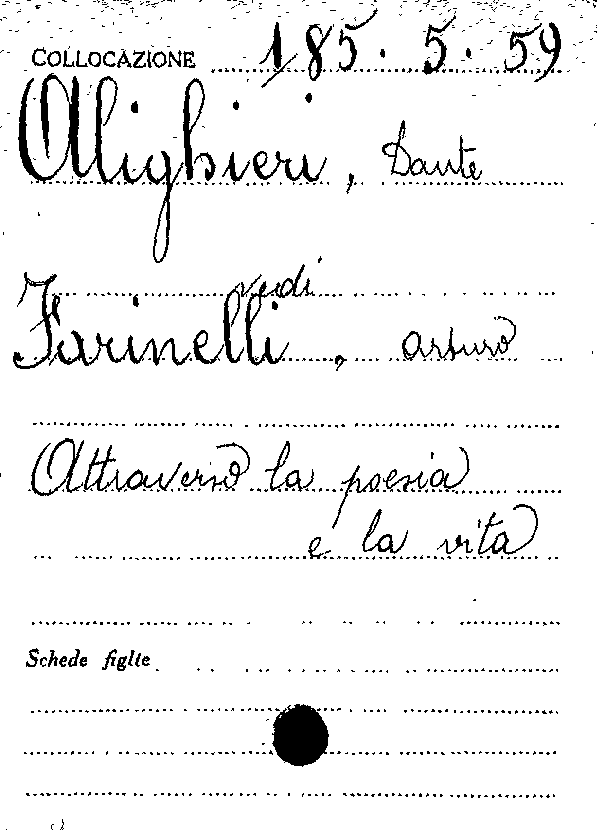 COLLOCAZIONE 185.5.59
Alighieri, Dante
vedi
Farinelli, Arturo
Attraverso la poesia
e la vita
Schede figlie